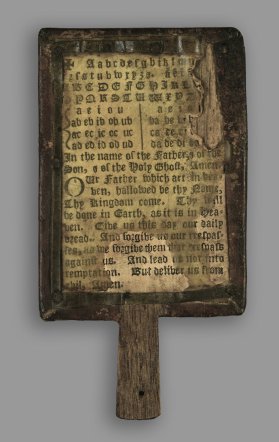 Aabcdefghiklm
rſstubwxyz. aeio
ABCDEFGHIK
PQRSTUWXYZ
a e i o u
ab eb ib ob ub ba be bi
ac ec ic oc uc ca ce ci
ad ed id od ud da de di do
In the name of the Father, & of the
Son, & of the Holy Ghost, Amen.
OUr Father which art in hea-
ven, hallowed be thy Name,
Thy kingdom come. Thy will
be done in Earth, as it is in Hea-
ven. Give us this day our daily
bread. And forgive us our treſpaſ-
ſes, as we forgive them that treſpaſs
againſt us. And lead us not into
temptation. But deliver us from
evil, Amen.